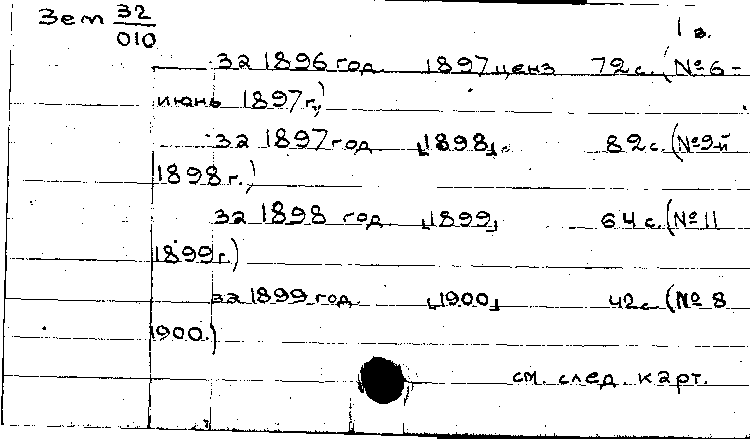 Зем 32
010
1 э.
за 1896 год 1897 ценз 72 с. (№ 6 -
июнь 1897 г.)
за 1897 год [1898]. 82 с. (№ 9-й
1898 г.)
за 1898 год [1899] 64 с. (№ 11
1899 г.)
за 1899 год. [1900] 42 с. (№ 8
1900.)
см. след. карт.